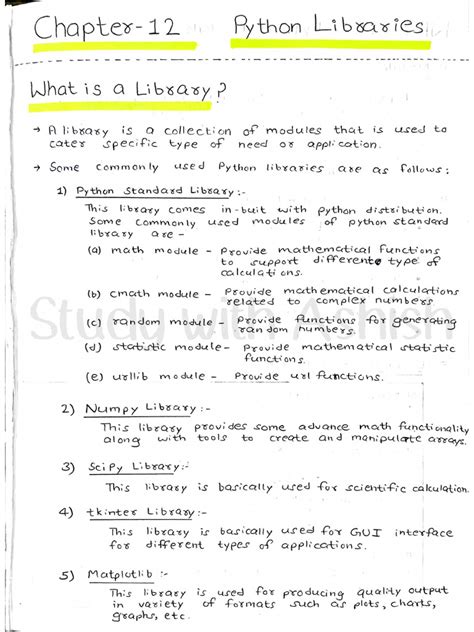 Chapter-12 Python Libraries
What is a Library?
→ A library is a collection of modules that is used to
cater specific type of need or application.
→ Some commonly used Python libraries are as follows:
1) Python Standard Library:-
This library comes in-buit with python distribution.
Some commonly used modules of python standard
library are -
(a) math module - Provide mathematical functions
to support different type of
calculations.
(b) cmath module - Provide mathematical calculations
related to complex numbers
(c) random module - Provide functions for generating
random numbers.
(d) statistic module - Provide mathematical statistic
functions.
(e) urllib module - Provide url functions.
Study with Ashish
2) Numpy Library :-
This library provides some advance math functionality
along with tools to create and manipulate arrays.
3) SciPy Library:-
This library is basically used for scientific calculation.
4) tkinter Library :-
This library is basically used for GUI interface
for different types of applications.
5) Matplotlib :-
This library is used for producing quality output
in variety of formats such as plots, charts,
graphs, etc.